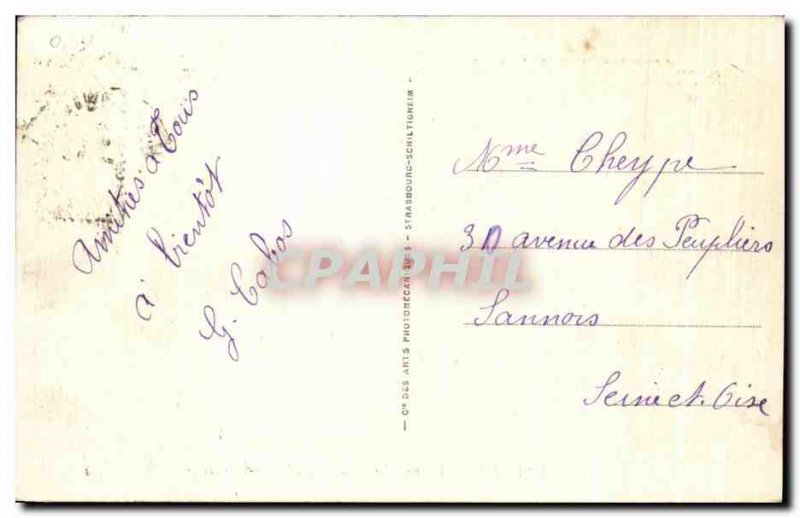 Amitiés à Tous
à bientôt
G. Cabos
— Cie DES ARTS PHOTOMÉCANIQUES – STRASBOURG-SCHILTIGHEIM –
CPAPHIL
Mme Cheype
avenue des Peupliers
Sannois
Seine et Oise